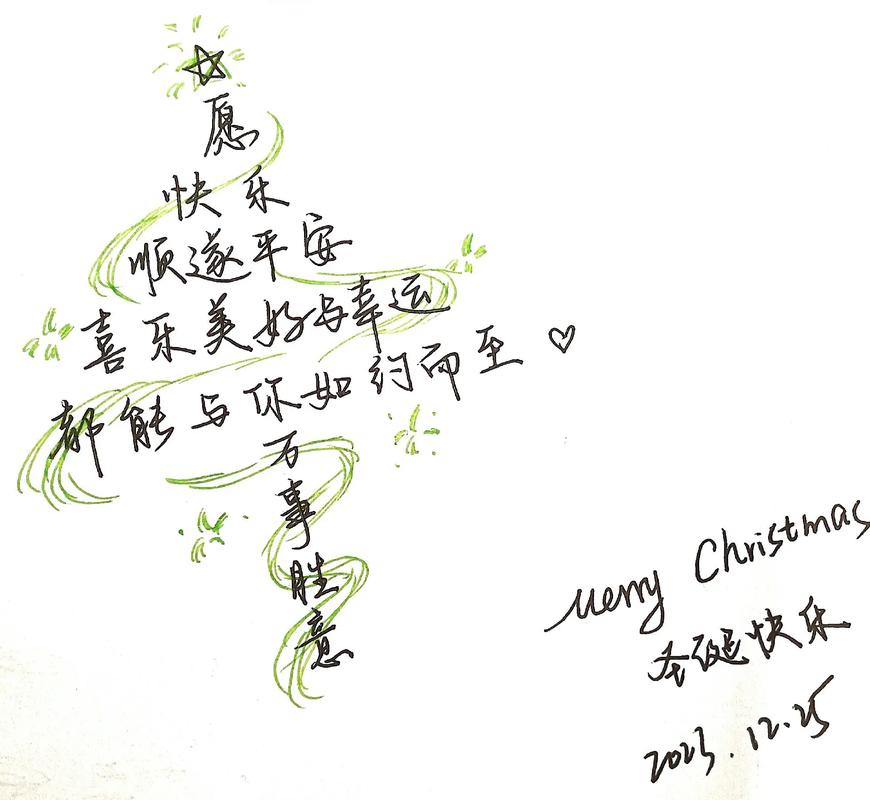 愿
快乐
顺遂平安
喜乐美好与幸运
都能与你如约而至
万事胜意
Merry Christmas
圣诞快乐
2023.12.25